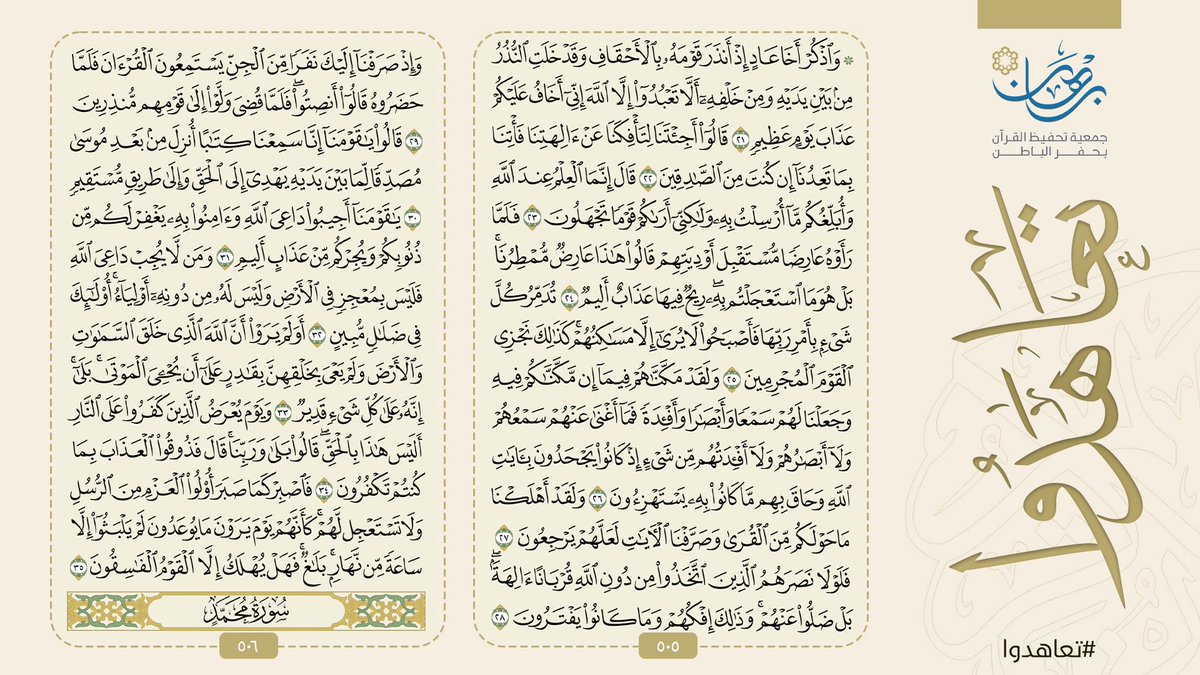 ۞ وَٱذْكُرْ أَخَا عَادٍ إِذْ أَنذَرَ قَوْمَهُۥ بِٱلْأَحْقَافِ وَقَدْ خَلَتِ ٱلنُّذُرُ
مِنۢ بَيْنِ يَدَيْهِ وَمِنْ خَلْفِهِۦٓ أَلَّا تَعْبُدُوٓا۟ إِلَّا ٱللَّهَ إِنِّىٓ أَخَافُ عَلَيْكُمْ
عَذَابَ يَوْمٍ عَظِيمٍ ٢١ قَالُوٓا۟ أَجِئْتَنَا لِتَأْفِكَنَا عَنْ ءَالِهَتِنَا فَأْتِنَا
بِمَا تَعِدُنَآ إِن كُنتَ مِنَ ٱلصَّٰدِقِينَ ٢٢ قَالَ إِنَّمَا ٱلْعِلْمُ عِندَ ٱللَّهِ
وَأُبَلِّغُكُم مَّآ أُرْسِلْتُ بِهِۦ وَلَٰكِنِّىٓ أَرَىٰكُمْ قَوْمًا تَجْهَلُونَ ٢٣ فَلَمَّا
رَأَوْهُ عَارِضًا مُّسْتَقْبِلَ أَوْدِيَتِهِمْ قَالُوا۟ هَٰذَا عَارِضٌ مُّمْطِرُنَا ۚ
بَلْ هُوَ مَا ٱسْتَعْجَلْتُم بِهِۦ ۖ رِيحٌ فِيهَا عَذَابٌ أَلِيمٌ ٢٤ تُدَمِّرُ كُلَّ
شَىْءٍۭ بِأَمْرِ رَبِّهَا فَأَصْبَحُوا۟ لَا يُرَىٰٓ إِلَّا مَسَٰكِنُهُمْ ۚ كَذَٰلِكَ نَجْزِى
ٱلْقَوْمَ ٱلْمُجْرِمِينَ ٢٥ وَلَقَدْ مَكَّنَّٰهُمْ فِيمَآ إِن مَّكَّنَّٰكُمْ فِيهِ
وَجَعَلْنَا لَهُمْ سَمْعًا وَأَبْصَٰرًا وَأَفْـِٔدَةً فَمَآ أَغْنَىٰ عَنْهُمْ سَمْعُهُمْ
وَلَآ أَبْصَٰرُهُمْ وَلَآ أَفْـِٔدَتُهُم مِّن شَىْءٍ إِذْ كَانُوا۟ يَجْحَدُونَ بِـَٔايَٰتِ
ٱللَّهِ وَحَاقَ بِهِم مَّا كَانُوا۟ بِهِۦ يَسْتَهْزِءُونَ ٢٦ وَلَقَدْ أَهْلَكْنَا
مَا حَوْلَكُم مِّنَ ٱلْقُرَىٰ وَصَرَّفْنَا ٱلْـَٔايَٰتِ لَعَلَّهُمْ يَرْجِعُونَ ٢٧
فَلَوْلَا نَصَرَهُمُ ٱلَّذِينَ ٱتَّخَذُوا۟ مِن دُونِ ٱللَّهِ قُرْبَانًا ءَالِهَةًۢ ۖ
بَلْ ضَلُّوا۟ عَنْهُمْ ۚ وَذَٰلِكَ إِفْكُهُمْ وَمَا كَانُوا۟ يَفْتَرُونَ ٢٨
٥٠٥
وَإِذْ صَرَفْنَآ إِلَيْكَ نَفَرًا مِّنَ ٱلْجِنِّ يَسْتَمِعُونَ ٱلْقُرْءَانَ فَلَمَّا
حَضَرُوهُ قَالُوٓا۟ أَنصِتُوا۟ ۖ فَلَمَّا قُضِىَ وَلَّوْا۟ إِلَىٰ قَوْمِهِم مُّنذِرِينَ
٢٩ قَالُوا۟ يَٰقَوْمَنَآ إِنَّا سَمِعْنَا كِتَٰبًا أُنزِلَ مِنۢ بَعْدِ مُوسَىٰ
مُصَدِّقًا لِّمَا بَيْنَ يَدَيْهِ يَهْدِىٓ إِلَى ٱلْحَقِّ وَإِلَىٰ طَرِيقٍ مُّسْتَقِيمٍ
٣٠ يَٰقَوْمَنَآ أَجِيبُوا۟ دَاعِىَ ٱللَّهِ وَءَامِنُوا۟ بِهِۦ يَغْفِرْ لَكُم مِّن
ذُنُوبِكُمْ وَيُجِرْكُم مِّنْ عَذَابٍ أَلِيمٍ ٣١ وَمَن لَّا يُجِبْ دَاعِىَ ٱللَّهِ
فَلَيْسَ بِمُعْجِزٍ فِى ٱلْأَرْضِ وَلَيْسَ لَهُۥ مِن دُونِهِۦٓ أَوْلِيَآءُ ۚ أُو۟لَٰٓئِكَ
فِى ضَلَٰلٍ مُّبِينٍ ٣٢ أَوَلَمْ يَرَوْا۟ أَنَّ ٱللَّهَ ٱلَّذِى خَلَقَ ٱلسَّمَٰوَٰتِ
وَٱلْأَرْضَ وَلَمْ يَعْىَ بِخَلْقِهِنَّ بِقَٰدِرٍ عَلَىٰٓ أَن يُحْـِۧىَ ٱلْمَوْتَىٰ ۚ بَلَىٰٓ
إِنَّهُۥ عَلَىٰ كُلِّ شَىْءٍ قَدِيرٌ ٣٣ وَيَوْمَ يُعْرَضُ ٱلَّذِينَ كَفَرُوا۟ عَلَى ٱلنَّارِ
أَلَيْسَ هَٰذَا بِٱلْحَقِّ ۖ قَالُوا۟ بَلَىٰ وَرَبِّنَا ۚ قَالَ فَذُوقُوا۟ ٱلْعَذَابَ بِمَا
كُنتُمْ تَكْفُرُونَ ٣٤ فَٱصْبِرْ كَمَا صَبَرَ أُو۟لُوا۟ ٱلْعَزْمِ مِنَ ٱلرُّسُلِ
وَلَا تَسْتَعْجِل لَّهُمْ ۚ كَأَنَّهُمْ يَوْمَ يَرَوْنَ مَا يُوعَدُونَ لَمْ يَلْبَثُوٓا۟ إِلَّا
سَاعَةً مِّن نَّهَارٍۭ ۚ بَلَٰغٌ ۚ فَهَلْ يُهْلَكُ إِلَّا ٱلْقَوْمُ ٱلْفَٰسِقُونَ ٣٥
سُورَةُ مُحَمَّدٍ
٥٠٦
برهان
جمعية تحفيظ القرآن
بحفر الباطن
تعاهدوا
#تعاهدوا